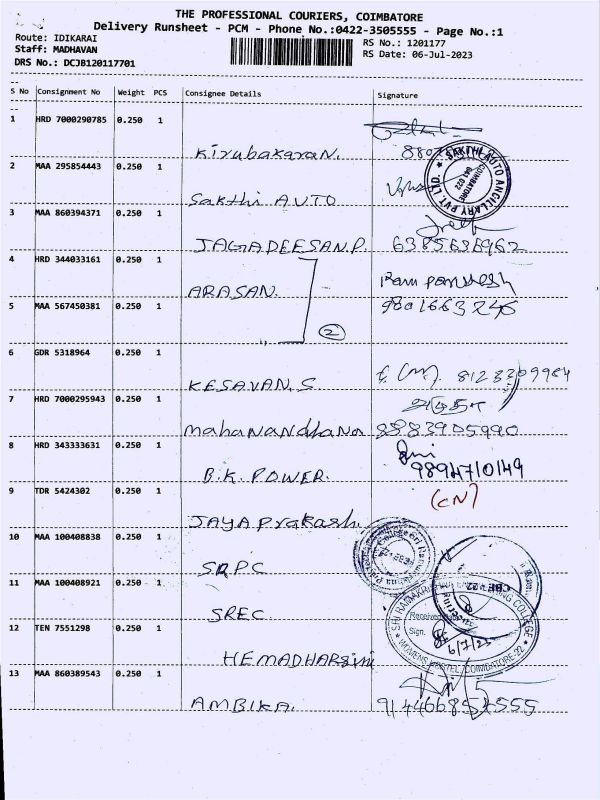 THE PROFESSIONAL COURIERS, COIMBATORE
Delivery Runsheet - PCM - Phone No.:0422-3505555 - Page No.:1
Route: IDIKARAI
RS No.: 1201177
Staff: MADHAVAN
RS Date: 06-Jul-2023
DRS No.: DCJB120117701
S No Consignment No Weight PCS Consignee Details Signature
1 HRD 7000290785 0.250 1
Kirubakaran.
2 MAA 295854443 0.250 1
Sakthi AUTO
SAKTHI AUTO ANCILLARY PVT LTD.
COIMBATORE
641 022
3 MAA 860394371 0.250 1
JAGADEESAN.P.
4 HRD 344033161 0.250 1
ARASAN.
9801663246
5 MAA 567450381 0.250 1
2
6 GDR 5318964 0.250 1
KESAVAN.S 8123309984
7 HRD 7000295943 0.250 1
mahanandhana 8883905990
8 HRD 343333631 0.250 1
B.K. POWER. 9894710149
9 TDR 5424302 0.250 1
(CN)
JAYAPrakash.
10 MAA 100408838 0.250 1
SRPC
11 MAA 100408921 0.250 1
SREC
SRI RAMAKRISHNA ENGINEERING COLLEGE
Received
Sign.
6/7/23
WOMENS HOSTEL, COIMBATORE-22
12 TEN 7551298 0.250 1
HEMADHARSini
13 MAA 860389543 0.250 1
AMBIKA.